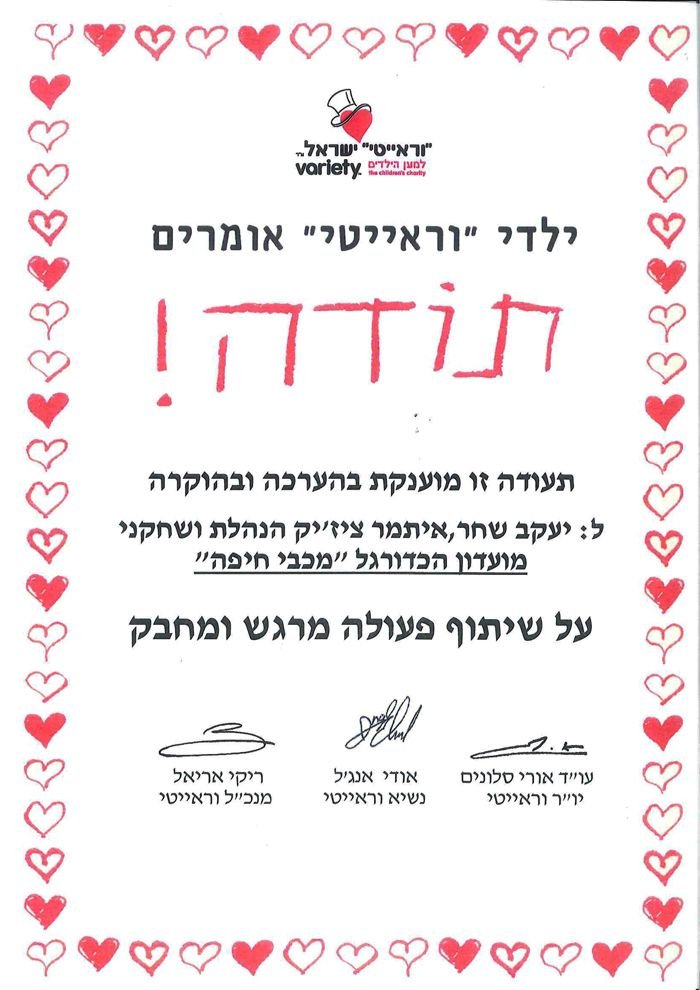 "וראייטי" ישראל
variety למען הילדים
the children's charity
ילדי "וראייטי" אומרים
תודה!
תעודה זו מוענקת בהערכה ובהוקרה
ל: יעקב שחר,איתמר ציז'יק הנהלת ושחקני
מועדון הכדורגל "מכבי חיפה"
על שיתוף פעולה מרגש ומחבק
עו"ד אורי סלונים
יו"ר וראייטי
אודי אנג'ל
נשיא וראייטי
ריקי אריאל
מנכ"ל וראייטי